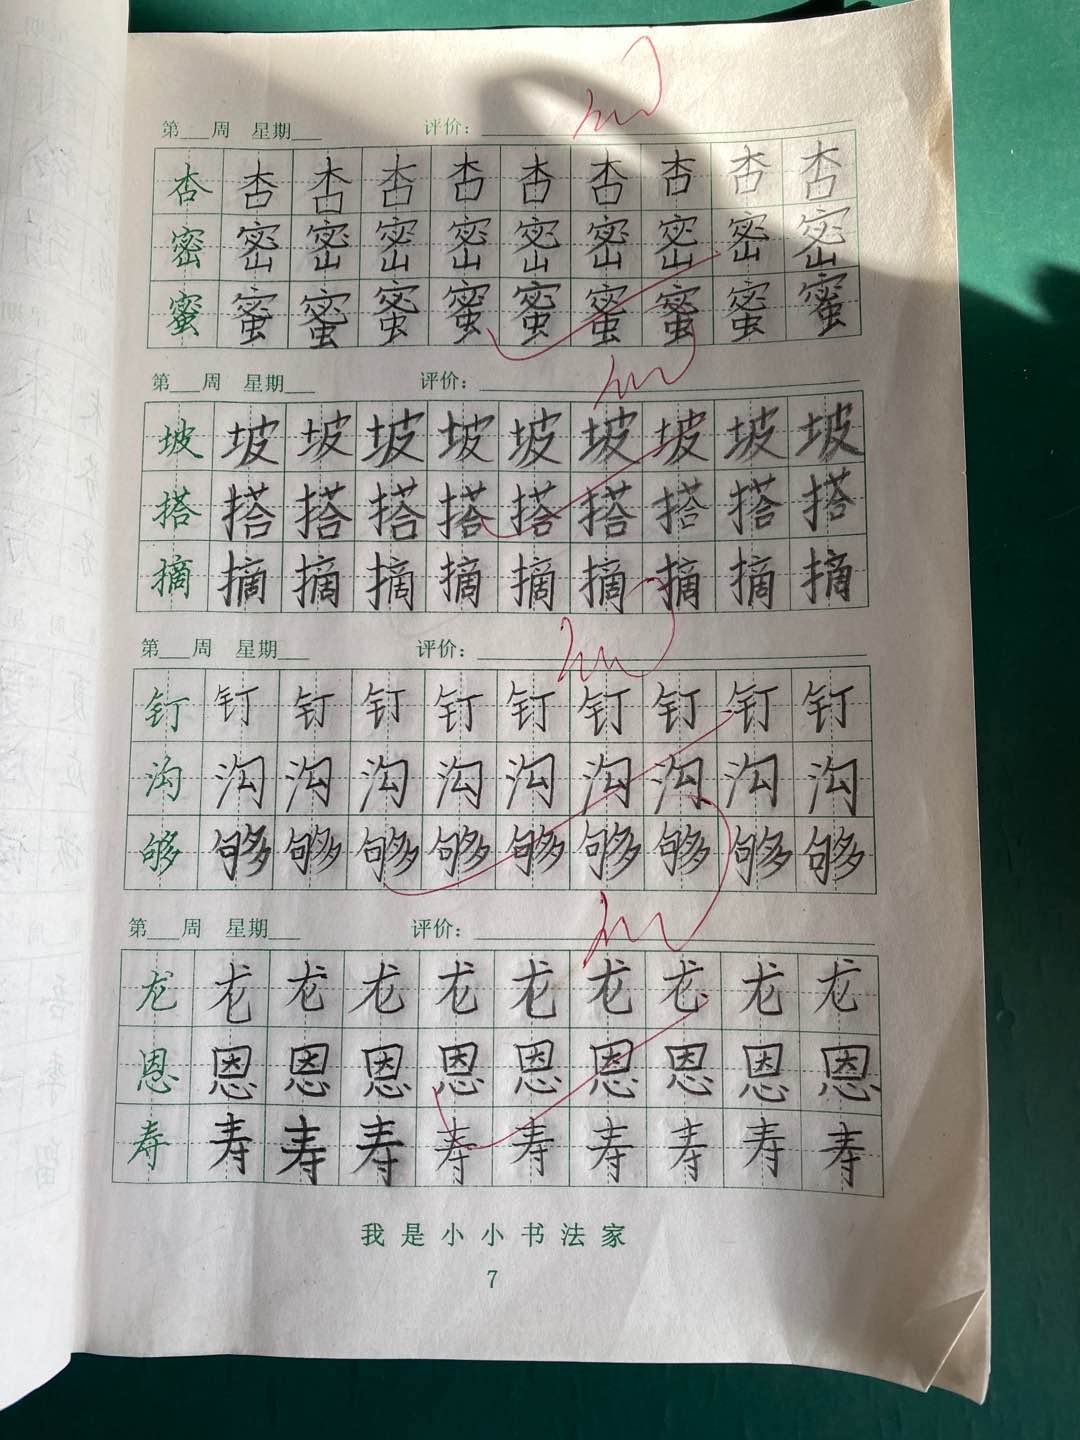 第___周 星期___ 评价：
杏 杏 杏 杏 杏 杏 杏 杏 杏 杏
密 密 密 密 密 密 密 密 密 密
蜜 蜜 蜜 蜜 蜜 蜜 蜜 蜜 蜜 蜜
第___周 星期___ 评价：
坡 坡 坡 坡 坡 坡 坡 坡 坡 坡
搭 搭 搭 搭 搭 搭 搭 搭 搭 搭
摘 摘 摘 摘 摘 摘 摘 摘 摘 摘
第___周 星期___ 评价：
钉 钉 钉 钉 钉 钉 钉 钉 钉 钉
沟 沟 沟 沟 沟 沟 沟 沟 沟 沟
够 够 够 够 够 够 够 够 够 够
第___周 星期___ 评价：
龙 龙 龙 龙 龙 龙 龙 龙 龙 龙
恩 恩 恩 恩 恩 恩 恩 恩 恩 恩
寿 寿 寿 寿 寿 寿 寿 寿 寿 寿
我是小小书法家
7